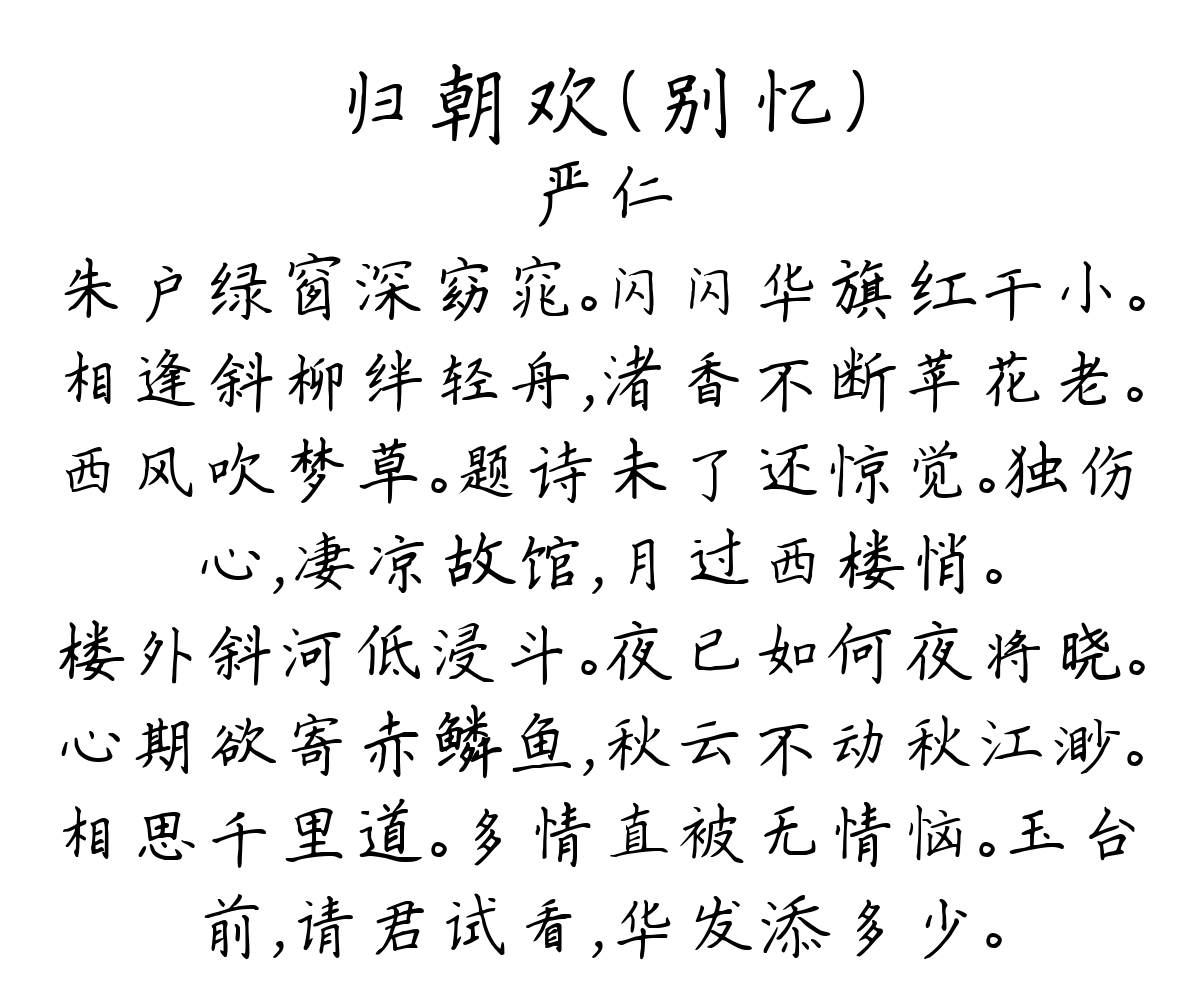 归朝欢(别忆)
严仁
朱户绿窗深窈窕。闪闪华旗红干小。
相逢斜柳绊轻舟,渚香不断苹花老。
西风吹梦草。题诗未了还惊觉。独伤
心,凄凉故馆,月过西楼悄。
楼外斜河低浸斗。夜已如何夜将晓。
心期欲寄赤鳞鱼,秋云不动秋江渺。
相思千里道。多情直被无情恼。玉台
前,请君试看,华发添多少。